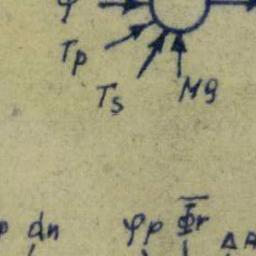 φ
Tp
Ts Mg
dn φp Φ̅r
ΔA